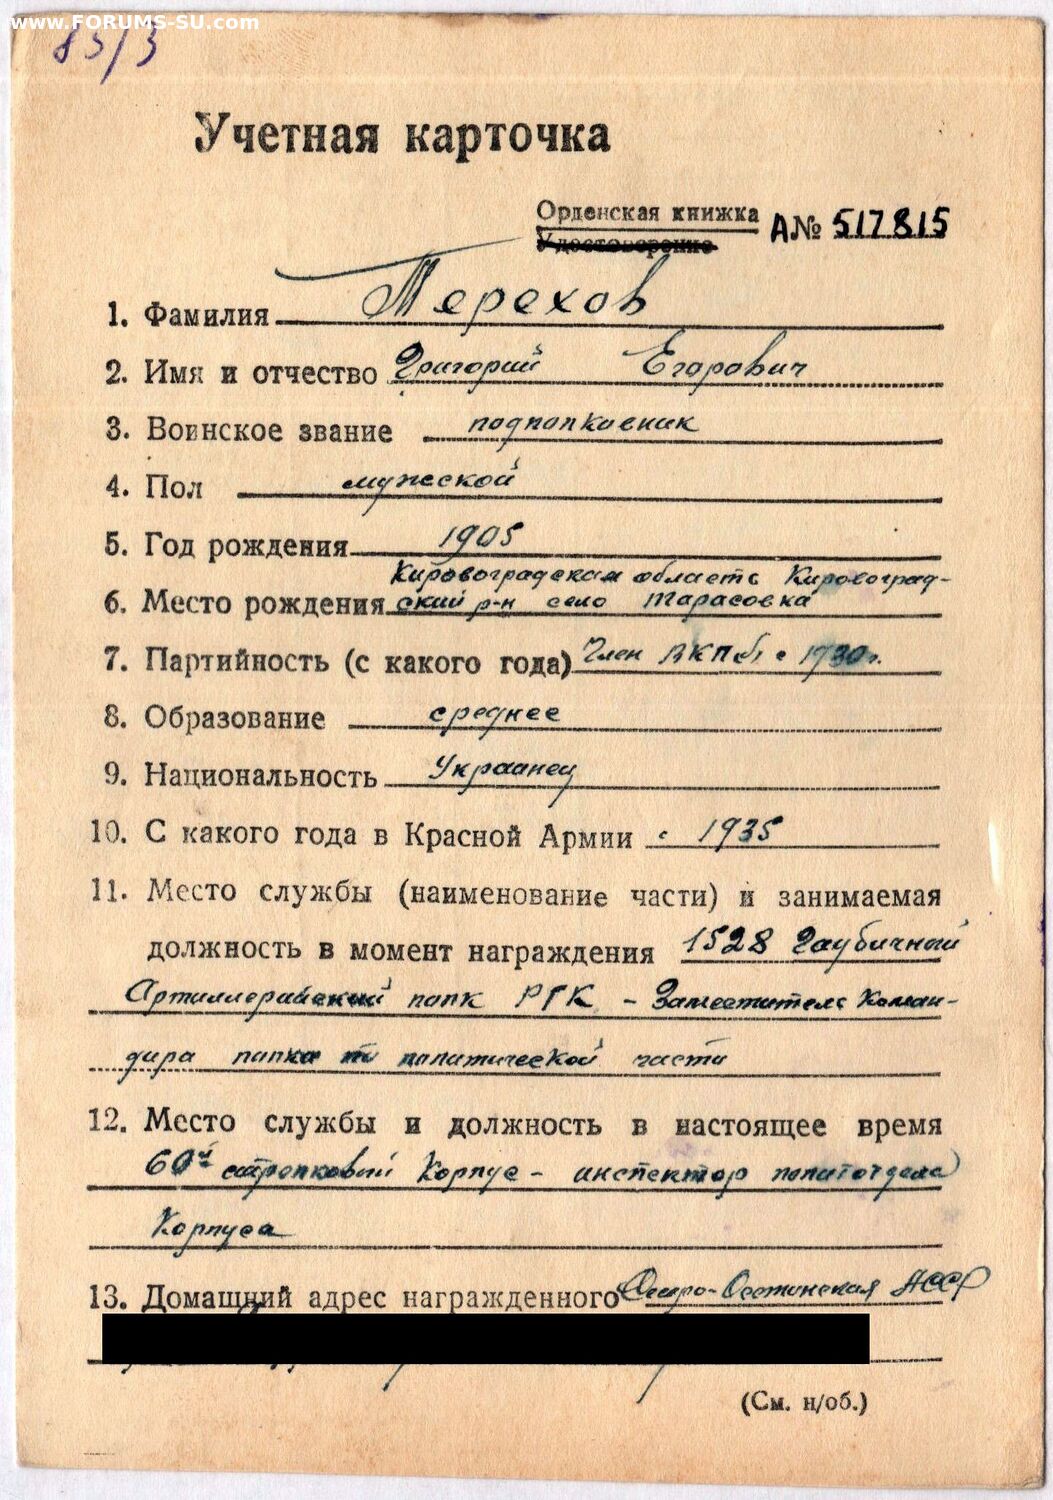 www.FORUMS-SU.com
83/3
Учетная карточка
Орденская книжка
Удостоверение
А№ 517815
1. Фамилия Терехов
2. Имя и отчество Григорий Егорович
3. Воинское звание подполковник
4. Пол мужской
5. Год рождения 1905
Кировоградская область Кировоград-
6. Место рождения ский р-н село Тарасовка
7. Партийность (с какого года) Член ВКПб с 1930 г.
8. Образование среднее
9. Национальность Украинец
10. С какого года в Красной Армии с 1935
11. Место службы (наименование части) и занимаемая
должность в момент награждения 1528 Гаубичный
Артиллерийский полк РГК – Заместитель Коман-
дира полка по политической части
12. Место службы и должность в настоящее время
60й стрелковый Корпус – инспектор политотдела
Корпуса
13. Домашний адрес награжденного Осетинская АССР
(См. н/об.)